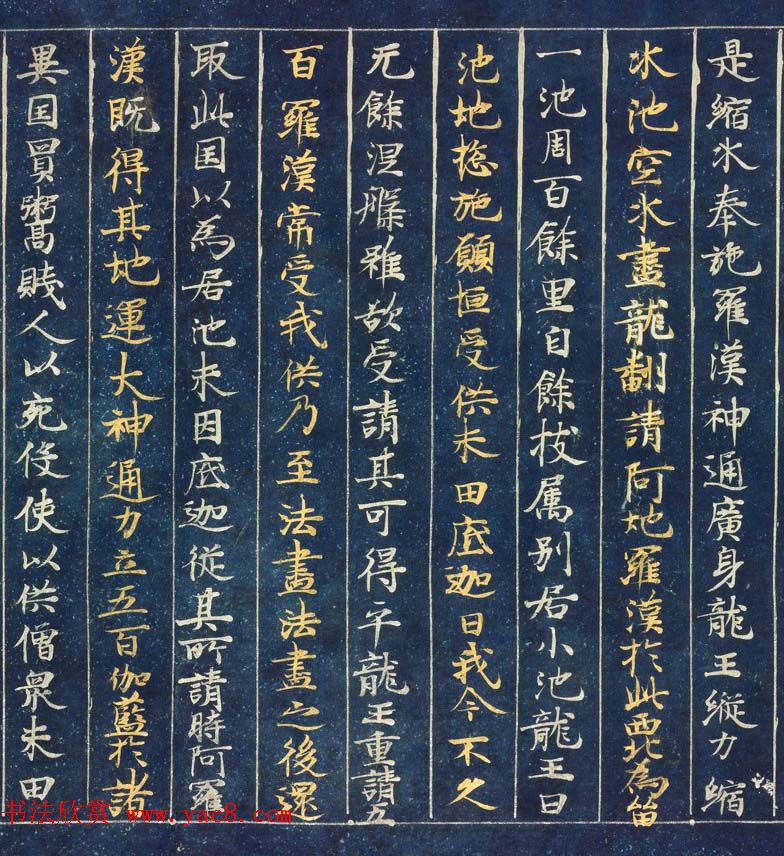 是縮水奉施羅漢神通廣身龍王縱力縮
水池空水盡龍翻請阿地羅漢於此西北為留
一池周百餘里自餘枝属别居小池龍王曰
池地揔施願恒受供末田底迦曰我今不久
无餘涅槃雖欲受請其可得乎龍王重請五
百羅漢常受我供乃至法盡法盡之後還
取此国以為居池末田底迦從其所請時阿羅
漢既得其地運大神通力立五百伽藍於諸
異国買鬻賤人以宛伇使以供僧衆末田
书法欣赏 www.yac8.com